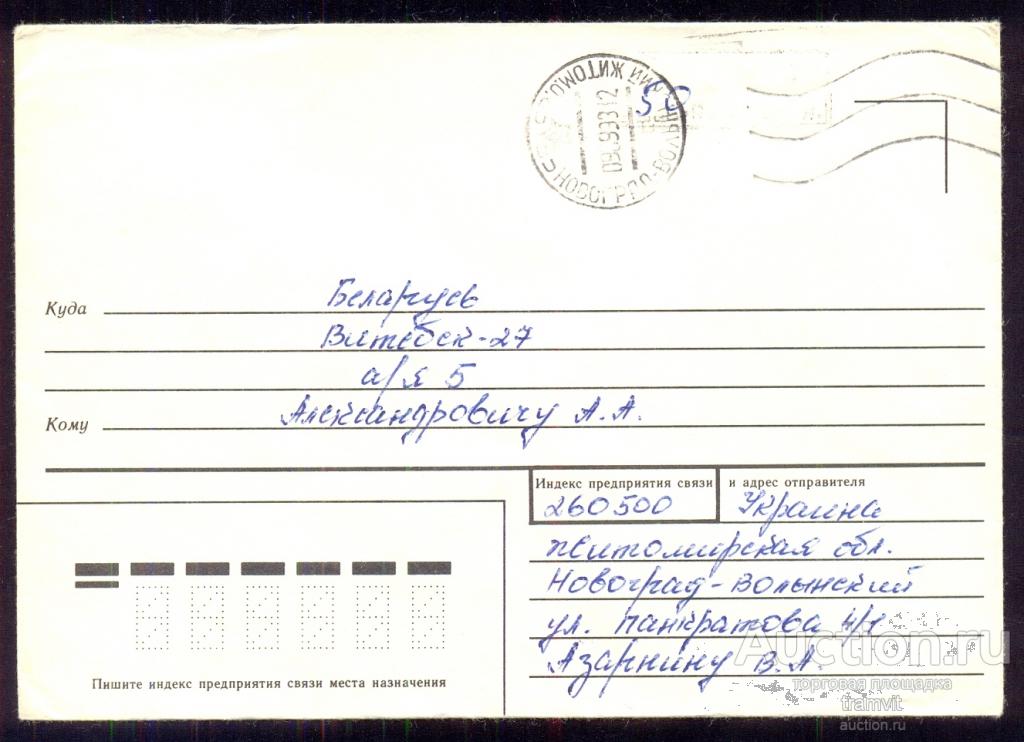 НОВОГРАД-ВОЛЫНСКИЙ ЖИТОМ.О.
50
Куда Беларусь
Витебск-27
а/я 5
Кому Александровичу А.А.
Индекс предприятия связи и адрес отправителя
260500 Украина
Житомирская обл.
Новоград-Волынский
ул. Панкратова 4/1
Азарнину В.А.
Пишите индекс предприятия связи места назначения
Auction.ru
торговая площадка
tramvit
auction.ru